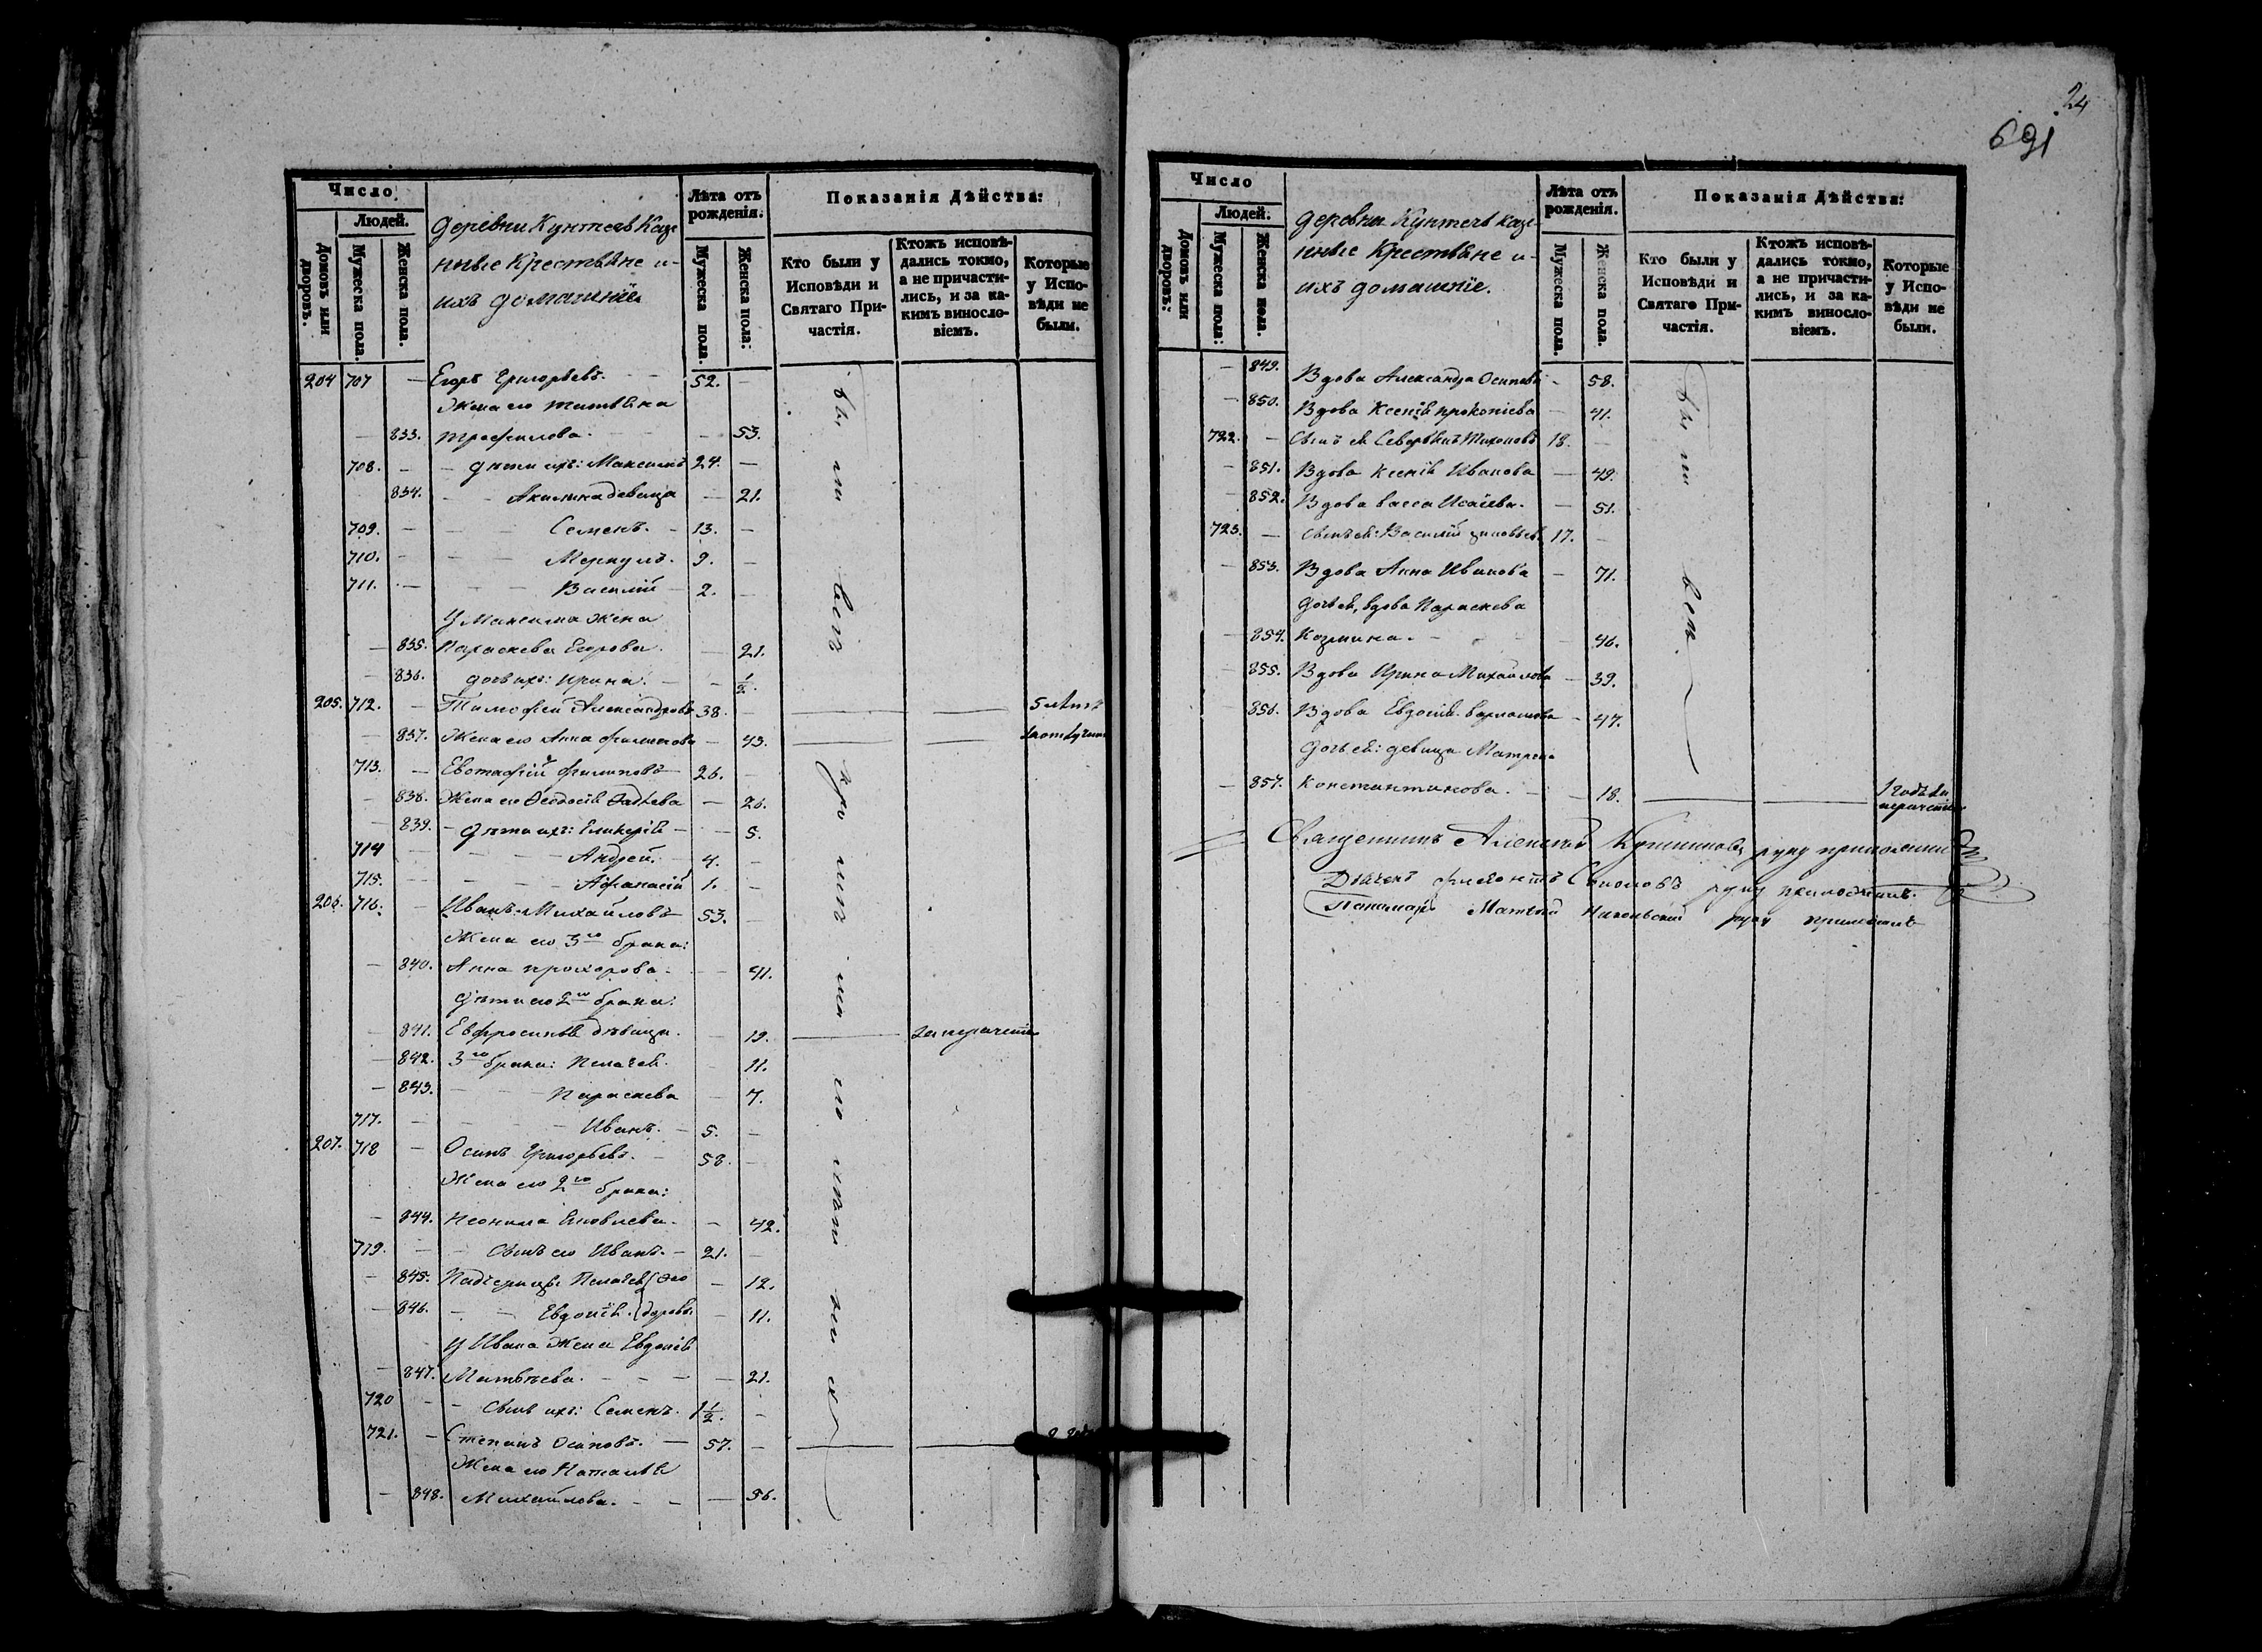 24
691
Число
Людей.
Домовъ или дворовъ.
Мужеска пола.
Женска пола.
Деревни Кунтеевъ Казе
нные Крестьяне и
ихъ домашніе
Лѣта отъ рожденія.
Мужеска пола.
Женска пола:
Показанія Дѣйства:
Кто были у Исповѣди и Святаго Причастія.
Ктожъ исповѣдались токмо, а не причастились, и за какимъ винословіемъ.
Которые у Исповѣди не были.
204 707 — Егоръ Григорьевъ. 52. —
Жена его Татьяна
— 833. Трофимова. — 53.
708. — дѣти ихъ: Максимъ 24. —
834. Акилина девица — 21.
709. — Семенъ. 13. —
710. — Меркулъ. 9. —
711. — Василій 2. —
У Максима жена
— 835. Параскева Егорова. — 21.
— 836. дочь ихъ: Ирина. — ½.
205. 712. — Тимофей Александровъ 38. 5 лѣтъ
— 837. Жена его Анна Филипова — 43. за отлучкою
713. — Евстафій Филиповъ 26. —
— 838. Жена его Ѳеодосія Фадѣева — 26.
— 839. — дѣти ихъ: Гликерія — 5.
714 — Андрей. 4. —
715. — Афанасій 1. —
206. 716. — Иванъ Михайловъ 53. —
Жена его 3го брака:
— 840. Анна Прохорова. — 41.
дѣти его 2го брака:
— 841. Евфросинья дѣвица. — 19. за нерачетіе
— 842. 3го брака: Пелагея. — 11.
— 843. Параскева — 7.
717. — Иванъ. 5. —
207. 718 — Осипъ Григорьевъ. 58. —
Жена его 2го брака:
— 844. Неонила Яковлева. — 42.
719. — сынъ его Иванъ. — 21. —
— 845. Падчерицы Пелагея Ѳео — 12.
— 846. Евдокія. доровы — 11.
У Ивана жена Евдокія
— 847. Матвѣева. — 21.
720 — сынъ ихъ: Семенъ. 1½. —
721. — Степанъ Осиповъ. — 57. —
Жена его Наталья
— 848. Михайлова. — 56.
Число
Людей.
Домовъ или дворовъ:
Мужеска пола:
Женска пола.
деревни Кунтеевъ казе
нные Крестьяне и
ихъ домашніе.
Лѣта отъ рожденія.
Мужеска пола.
Женска пола.
Показанія Дѣйства:
Кто были у Исповѣди и Святаго Причастія.
Ктожъ исповѣдались токмо, а не причастились, и за какимъ винословіемъ.
Которые у Исповѣди не были.
— 849. Вдова Александра Осипова — 58.
— 850. Вдова Ксенія Прокопіева — 41.
722. — Сынъ ея Северьянъ Тихоновъ 18. —
— 851. Вдова Ксенія Иванова — 49.
— 852. Вдова Васса Исаіева. — 51.
723. — Сынъ ея: Василій Зиновьевъ 17. —
— 853. Вдова Анна Иванова — 71.
дочь ея, вдова Параскева
— 854. Козмина. — 46.
— 855. Вдова Ирина Михайлова — 39.
— 856. Вдова Евдокія Варламова — 47.
дочь ея: девица Матрена
— 857. Константинова. — 18. 1 годъ за нерачетіе
Священникъ Алексѣй руку приложилъ
Дьячекъ руку приложилъ.
Пономарь Матвей Никольскій руку приложилъ